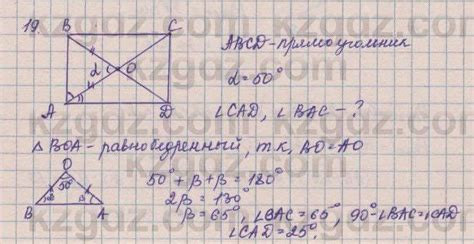 19.
B C
α O
A D
ABCD - прямоугольник
α = 50°
∠CAD, ∠BAC - ?
△ BOA - равнобедренный, т.к, BO = AO
O
50°
β β
B A
50° + β + β = 180°
2β = 130°
β = 65°, ∠BAC = 65°, 90° - ∠BAC = ∠CAD
∠CAD = 25°.
kzgdz.com